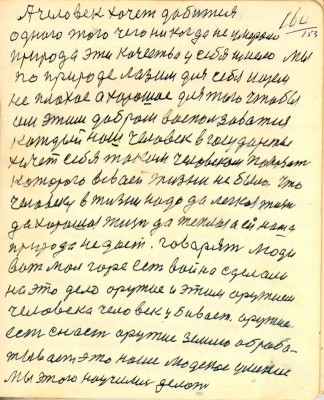 А человек хочет добится
160
153
одного этого чего никогда не умерло
природа эти качества у себя имело мы
по природе лазим для себя ищем
не плохое а хорошое для того чтобы
им этим добром воспользоватся
каждый наш человек в государстве
хотит себя таким человеком показат
которого в своей жизни не было что
человеку в жизни надо да легкая жизн
да хорошая жизн да теплая а ей наша
природа не дает. говорят люди
вот мол горе ест война сделали
на это дело оружие и этим оружием
человека человек убивает. оружие
ест снаст оружие землю обраба-
тывает это наше людское умение
мы этого научились делат